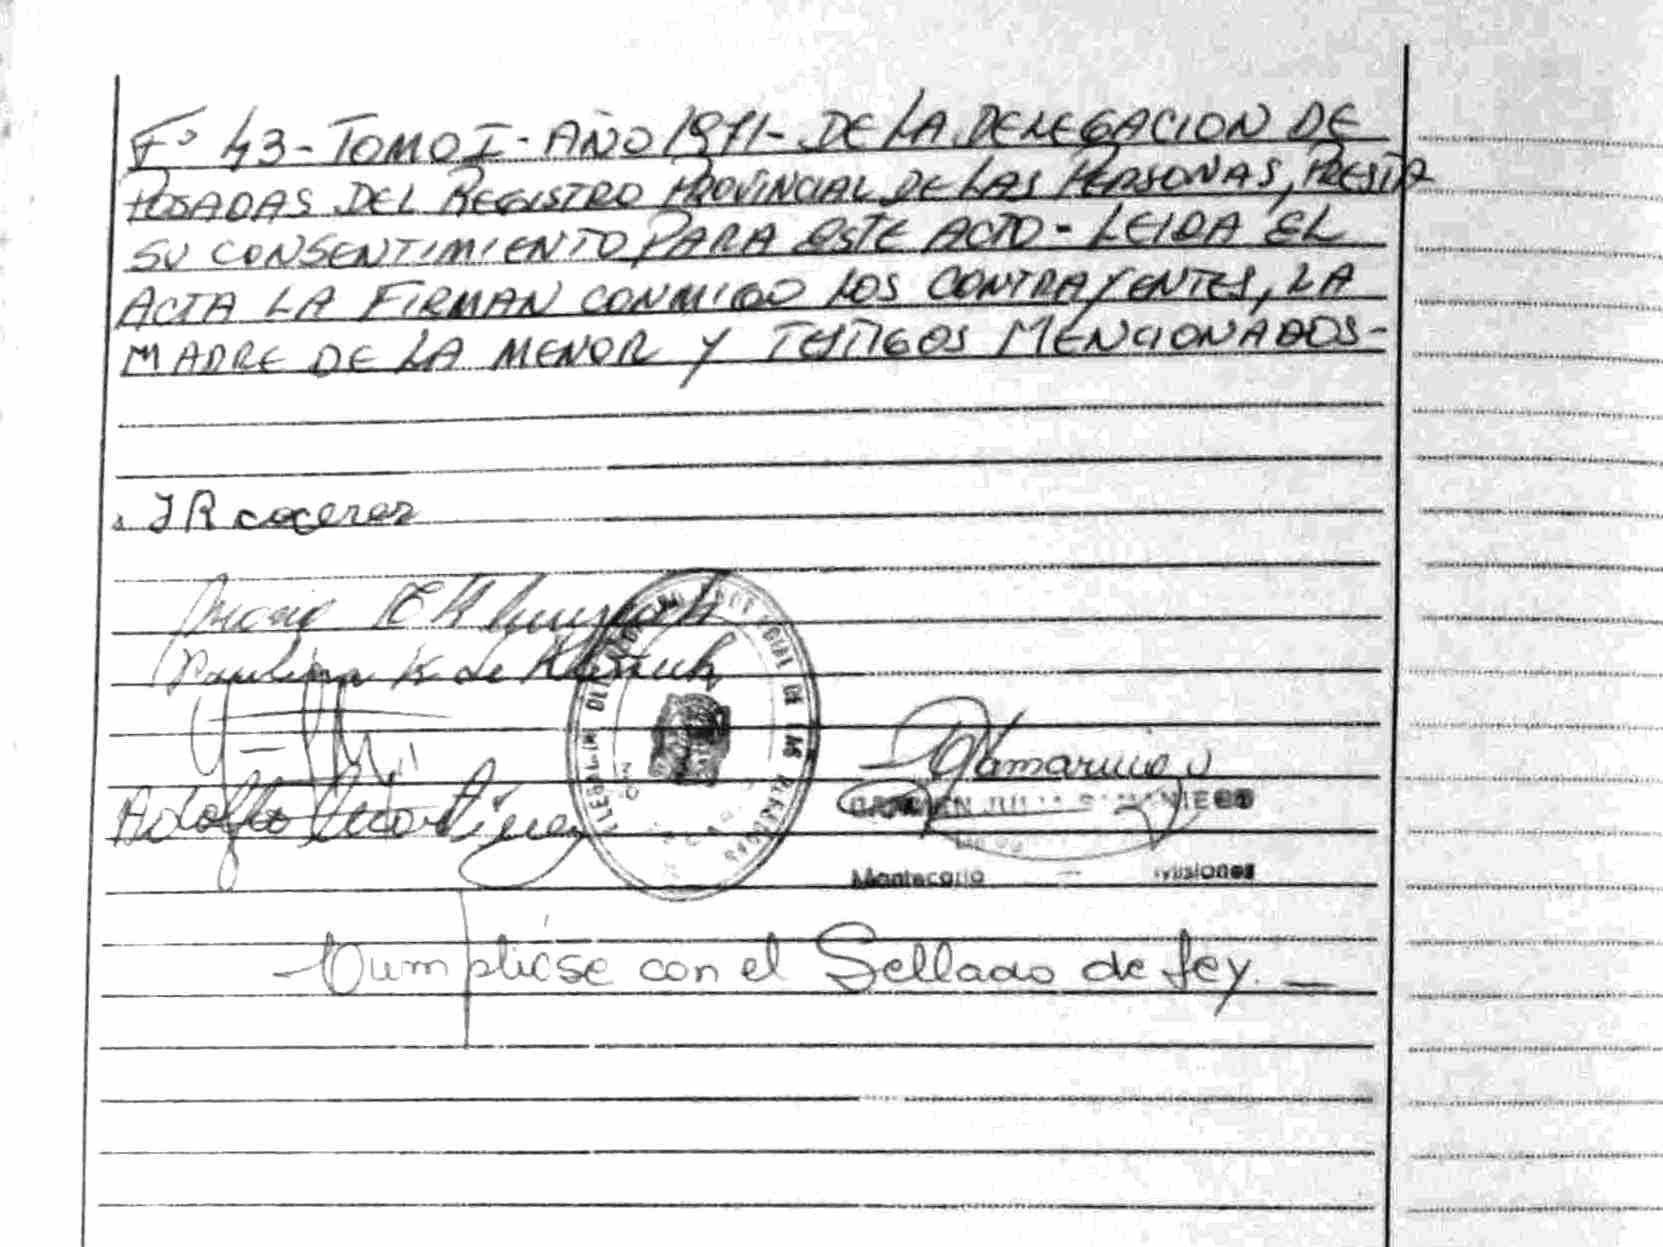 Fº 43-TOMO I-AÑO 1971-DE LA DELEGACION DE
POSADAS DEL REGISTRO PROVINCIAL DE LAS PERSONAS, PRESTA
SU CONSENTIMIENTO PARA ESTE ACTO-LEIDA EL
ACTA LA FIRMAN CONMIGO LOS CONTRAYENTES, LA
MADRE DE LA MENOR Y TESTIGOS MENCIONADOS-
JR caceres
Paulina K de
Adolfo Martinez
Montecarlo - Misiones
Cumpliése con el Sellado de Ley.-